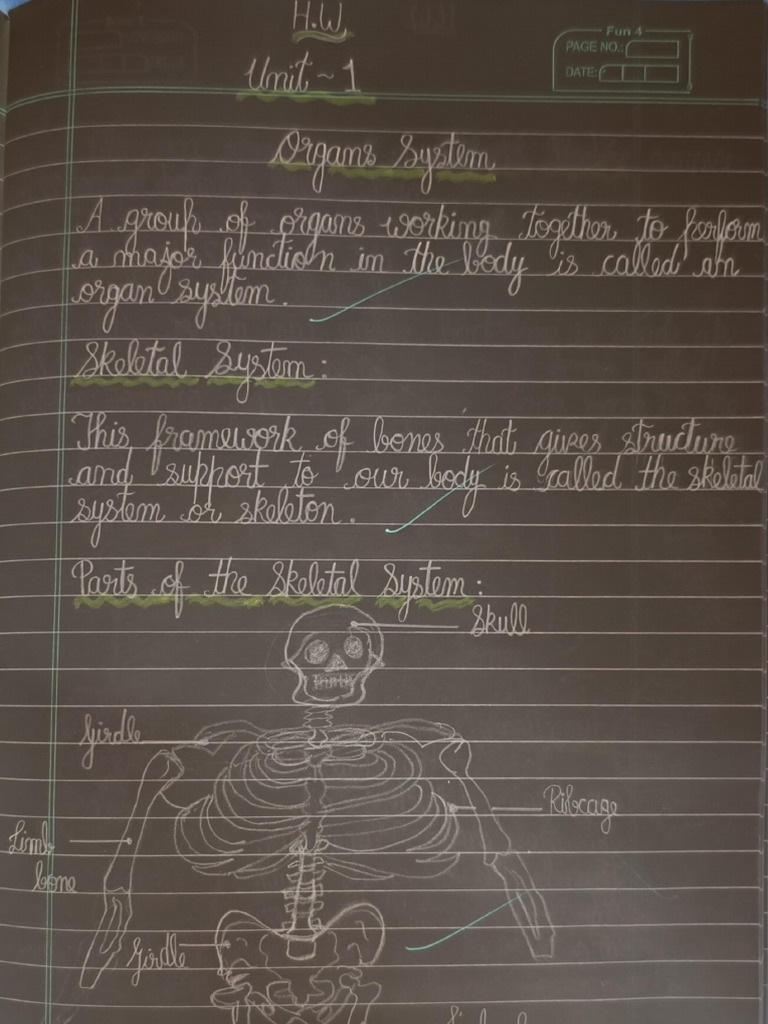 H.W
Unit ~ 1
Fun 4
PAGE NO.:
DATE:
Organs System
A group of organs working together to perform
a major function in the body is called an
organ system.
Skeletal System:
This framework of bones that gives structure
and support to our body is called the skeletal
system or skeleton.
Parts of the Skeletal System:
Skull
Girdle
Ribcage
Limb
bone
Girdle